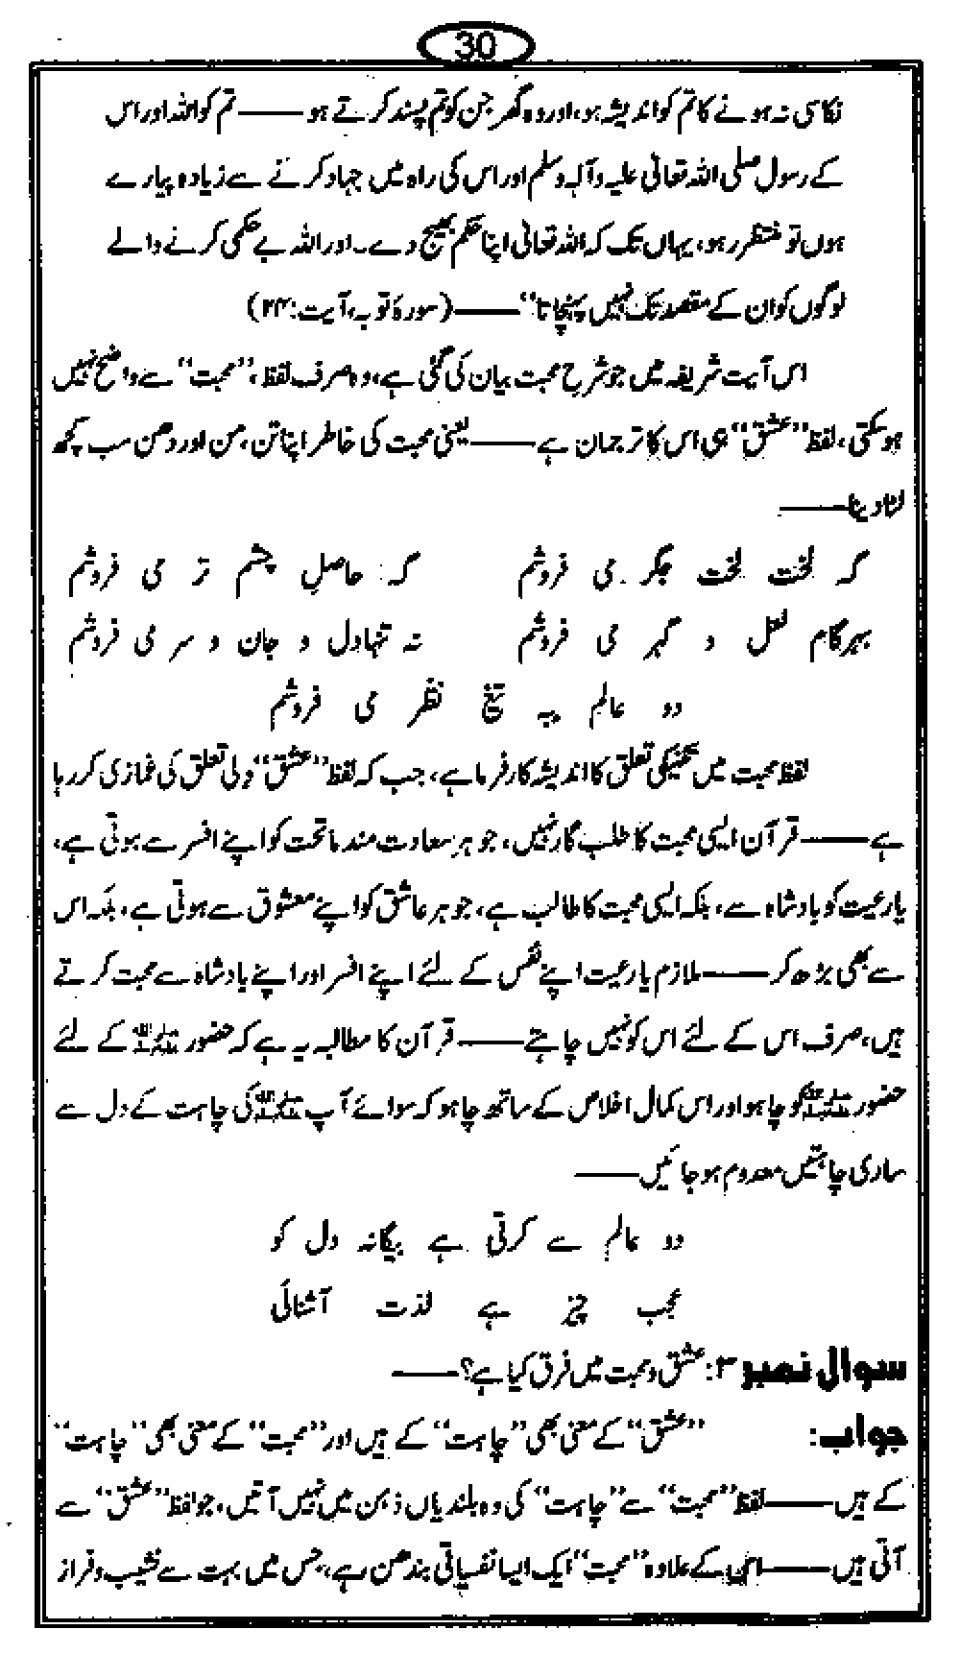 30
نکاسی نہ ہونے کا تم کو اندیشہ ہو، اور وہ گھر جن کو تم پسند کرتے ہو ——— تم کو اللہ اور اس
کے رسول صلی اللہ تعالیٰ علیہ وآلہ وسلم اور اس کی راہ میں جہاد کرنے سے زیادہ پیارے
ہوں تو منتظر رہو، یہاں تک کہ اللہ تعالیٰ اپنا حکم بھیج دے۔ اور اللہ بے حکمی کرنے والے
لوگوں کو ان کے مقصد تک نہیں پہنچاتا“ ——— (سورۂ توبہ، آیت: ۲۴)
اس آیت شریفہ میں جو شرحِ محبت بیان کی گئی ہے، وہ صرف لفظ، ”محبت“ سے واضح نہیں
ہو سکتی، لفظ ”عشق“ ہی اس کا ترجمان ہے ——— یعنی محبت کی خاطر اپنا تن، من اور دھن سب کچھ
لٹا دینا ———
گہ لخت لخت جگر می فروشم گہ حاصلِ چشم تر می فروشم
بہر گام لعل و گہر می فروشم نہ تنہا دل و جان و سر می فروشم
دو عالم بہ تیغ نظر می فروشم
لفظ محبت میں تعلق کا اندیشہ کار فرما ہے، جب کہ لفظ ”عشق“ دلی تعلق کی غمازی کر رہا
ہے ——— قرآن ایسی محبت کا طلب گار نہیں، جو ہر سعادت مند ماتحت کو اپنے افسر سے ہوتی ہے،
یا رعیت کو بادشاہ سے، بلکہ ایسی محبت کا طالب ہے، جو ہر عاشق کو اپنے معشوق سے ہوتی ہے، بلکہ اس
سے بھی بڑھ کر ——— ملازم یا رعیت اپنے نفس کے لئے اپنے افسر اور اپنے بادشاہ سے محبت کرتے
ہیں، صرف اس کے لئے اس کو نہیں چاہتے ——— قرآن کا مطالبہ یہ ہے کہ حضور ﷺ کے لئے
حضور ﷺ کو چاہو اور اس کمال اخلاص کے ساتھ چاہو کہ سوائے آپ ﷺ کی چاہت کے دل سے
ساری چاہتیں معدوم ہو جائیں ———
دو عالم سے کرتی ہے بیگانہ دل کو
عجب چیز ہے لذت آشنائی
سوال نمبر ۳: عشق و محبت میں فرق کیا ہے؟ ———
جواب: ”عشق“ کے معنی بھی ”چاہت“ کے ہیں اور ”محبت“ کے معنی بھی ”چاہت“
کے ہیں ——— لفظ ”محبت“ سے ”چاہت“ کی وہ بلندیاں ذہن میں نہیں آتیں، جو لفظ ”عشق“ سے
آتی ہیں ——— اس کے علاوہ ”محبت“ ایک ایسا نفسیاتی بندھن ہے، جس میں بہت سے نشیب و فراز